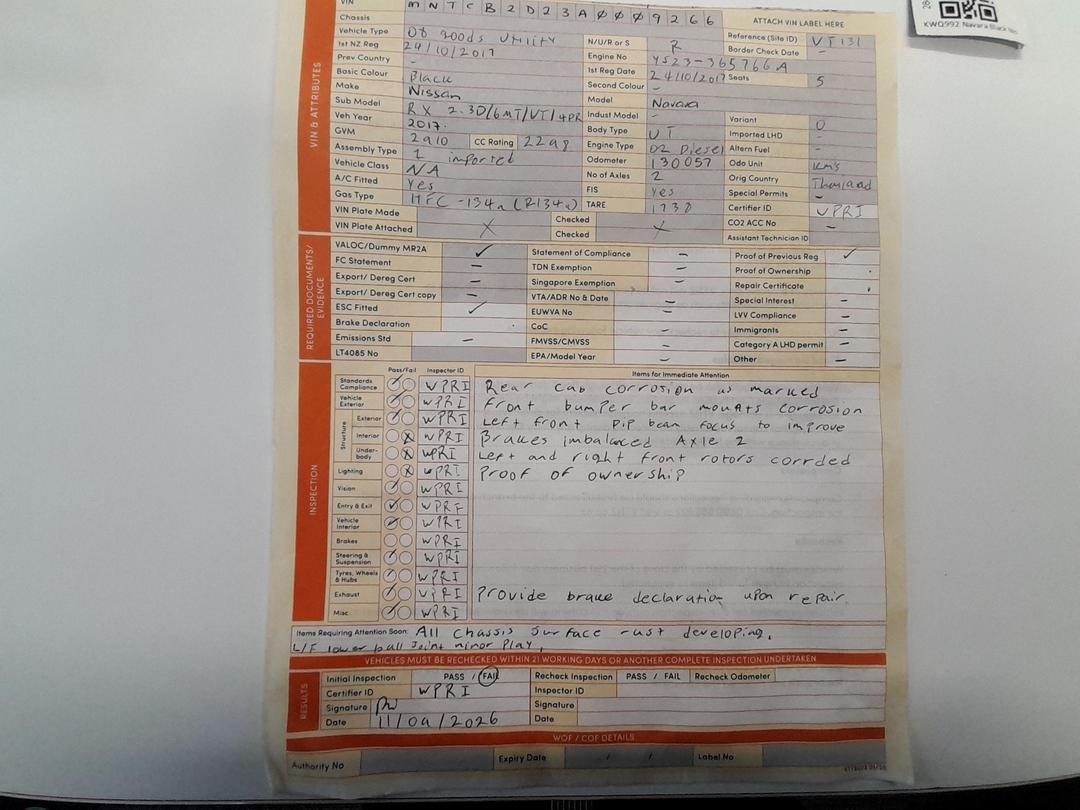 KWQ992 Navara Black Nis
VIN M N T C B 2 D 2 3 A 0 0 0 9 2 6 6 ATTACH VIN LABEL HERE
Chassis
Vehicle Type 08 goods utility N/U/R or S R Reference (Site ID) VT131
1st NZ Reg 24/10/2017 Engine No YS23-365766A Border Check Date -
Prev Country - 1st Reg Date 24/10/2017 Seats 5
Basic Colour Black Second Colour -
Make Nissan Model Navara
Sub Model RX 2.3D/6MT/UT/4PR Indust Model - Variant 0
Veh Year 2017. Body Type UT Imported LHD -
GVM 2910 CC Rating 2298 Engine Type 02 Diesel Altern Fuel -
Assembly Type 1 imported Odometer 130057 Odo Unit kms
Vehicle Class NA No of Axles 2 Orig Country Thailand
A/C Fitted Yes FIS Yes Special Permits -
Gas Type HFC-134a (R134a) TARE 1738 Certifier ID WPRI
VIN Plate Made Checked CO2 ACC No -
VIN Plate Attached X Checked X Assistant Technician ID
VIN & ATTRIBUTES
VALOC/Dummy MR2A ✓ Statement of Compliance - Proof of Previous Reg ✓
FC Statement - TDN Exemption - Proof of Ownership
Export/ Dereg Cert - Singapore Exemption - Repair Certificate
Export/ Dereg Cert copy - VTA/ADR No & Date - Special Interest -
ESC Fitted ✓ EUWVA No - LVV Compliance -
Brake Declaration CoC - Immigrants -
Emissions Std - FMVSS/CMVSS - Category A LHD permit -
LT4085 No EPA/Model Year - Other -
REQUIRED DOCUMENTS/
EVIDENCE
Pass/Fail Inspector ID Items for Immediate Attention
Standards Compliance WPRI Rear cab corrosion as marked
Vehicle Exterior WPRI Front bumper bar mounts corrosion
Structure Exterior WPRI Left front Dip beam focus to improve
Interior WPRI Brakes imbalanced Axle 2
Under-body WPRI Left and right front rotors corrded
Lighting WPRI Proof of ownership
Vision WPRI
Entry & Exit WPRI
Vehicle Interior WPRI
Brakes WPRI
Steering & Suspension WPRI
Tyres, Wheels & Hubs WPRI
Exhaust WPRI Provide brake declaration upon repair.
Misc. WPRI
INSPECTION
Items Requiring Attention Soon: All chassis surface rust developing.
L/F lower ball Joint minor play.
VEHICLES MUST BE RECHECKED WITHIN 21 WORKING DAYS OR ANOTHER COMPLETE INSPECTION UNDERTAKEN
Initial Inspection PASS / FAIL Recheck Inspection PASS / FAIL Recheck Odometer
Certifier ID WPRI Inspector ID
Signature Signature
Date 11/09/2026 Date
RESULTS
WOF / COF DETAILS
Authority No Expiry Date / / Label No